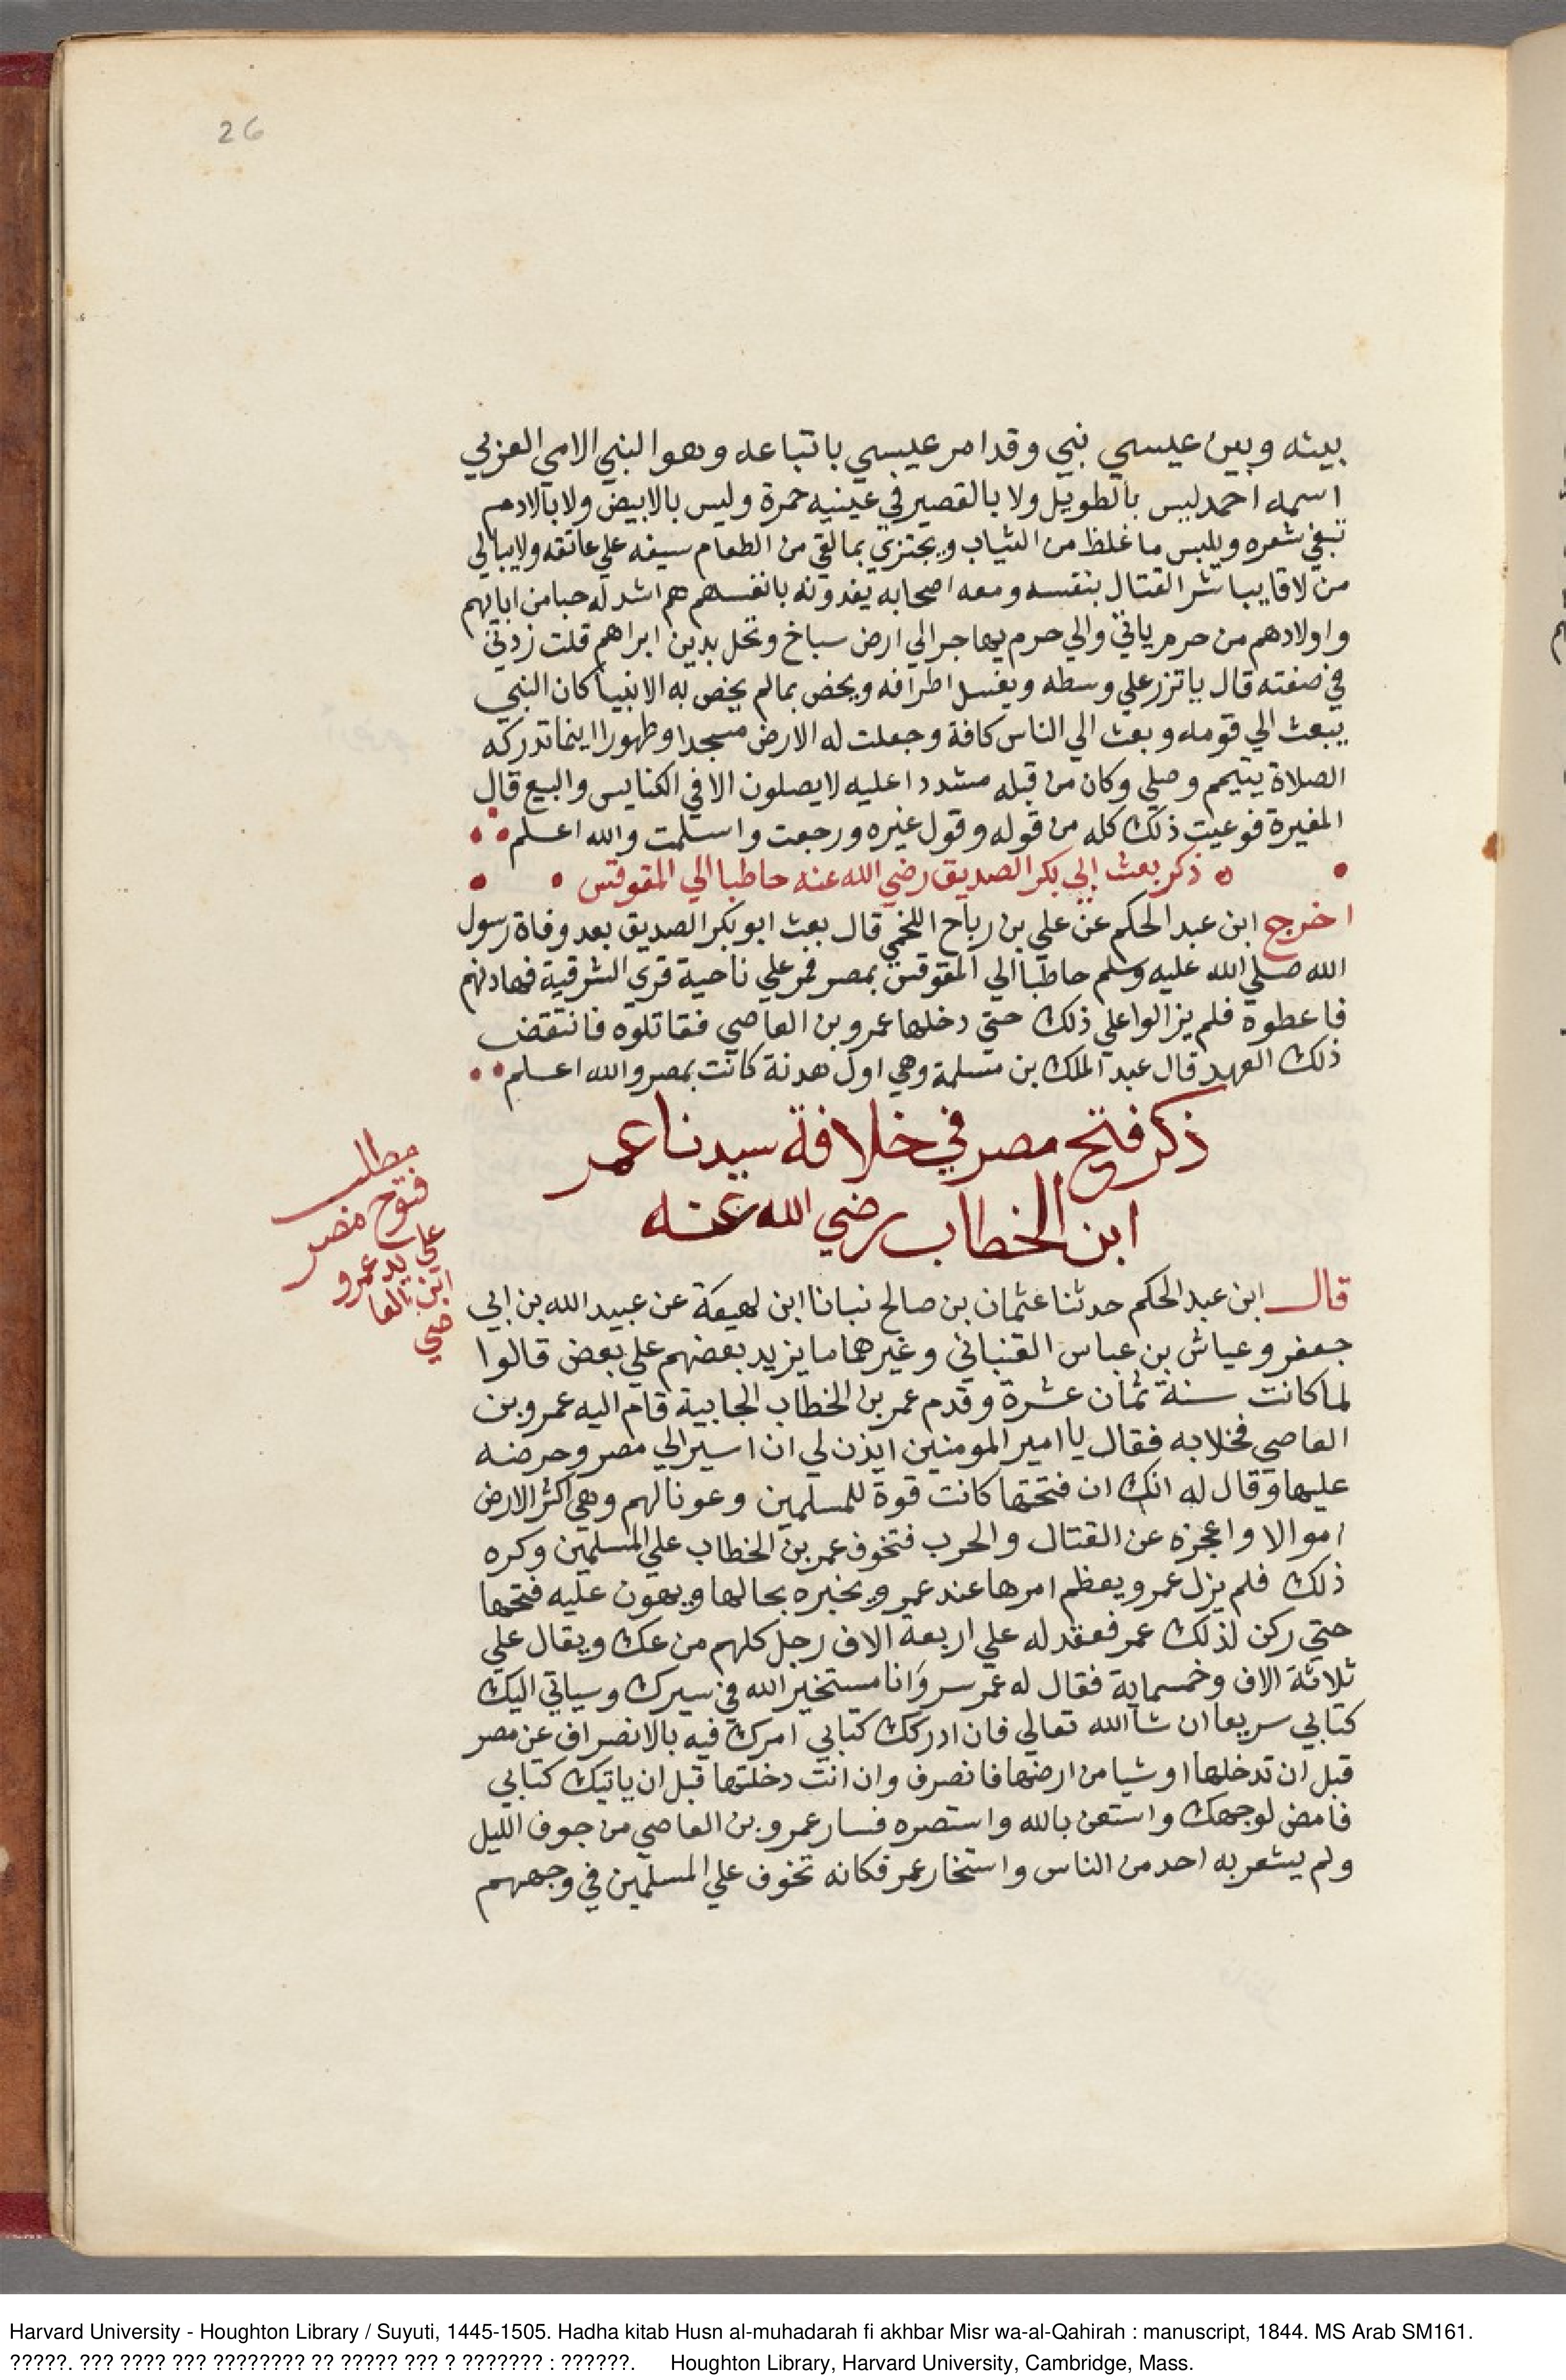 26
بينه وبين عيسي نبي وقد امر عيسي باتباعه وهو النبي الامي العربي
اسمه احمد ليس بالطويل ولا بالقصير في عينيه حمرة وليس بالابيض ولا بالادم
يبقي شعره ويلبس ما غلظ من الثياب ويجتزي بما لقي من الطعام سيفه علي عاتقه ولا يبالي
من لاقا يباشر القتال بنفسه ومعه اصحابه يفدونه بانفسهم هم اشد له حبا من ابايهم
واولادهم من حرم ياتي والي حرم يهاجر الي ارض سباخ ونخل يدين ابراهم قلت زدني
في صفته قال ياتزر علي وسطه ويغسل اطرافه ويخص بما لم يخص به الانبيا كان النبي
يبعث الي قومه وبعث الي الناس كافة وجعلت له الارض مسجدا وطهورا اينما تدركه
الصلاة يتيمم وصلي وكان من قبله مشددا عليه لا يصلون الا في الكنايس والبيع قال
المغيرة فوعيت ذلك كله من قوله وقول غيره ورجعت واسلمت والله اعلم
ذكر بعث ابي بكر الصديق رضي الله عنه حاطبا الي المقوقس
اخرج ابن عبد الحكم عن علي بن رباح اللخمي قال بعث ابو بكر الصديق بعد وفاة رسول
الله صلي الله عليه وسلم حاطبا الي المقوقس بمصر فمر علي ناحية قري الشرقية فهادنهم
فاعطوه فلم يزالوا علي ذلك حتي دخلها عمرو بن العاصي فقاتلوه فانتقض
ذلك العهد قال عبد الملك بن مسلمة وهي اول هدنة كانت بمصر والله اعلم
ذكر فتح مصر في خلافة سيدنا عمر
ابن الخطاب رضي الله عنه
مطلب
فتوح مصر
علي يد عمرو
ابن العا
صي
قال ابن عبد الحكم حدثنا عثمان بن صالح نبانا ابن لهيعة عن عبيد الله بن ابي
جعفر وعياش بن عباس القتباني وغيرهما ما يزيد بعضهم علي بعض قالوا
لما كانت سنة ثمان عشرة وقدم عمر بن الخطاب الجابية قام اليه عمرو بن
العاصي فخلا به فقال يا امير المومنين ايذن لي ان اسير الي مصر وحرضه
عليها وقال له انك ان فتحتها كانت قوة للمسلمين وعونا لهم وهي اكثر الارض
اموالا واعجزه عن القتال والحرب فتخوف عمر بن الخطاب علي المسلمين وكره
ذلك فلم يزل عمرو يعظم امرها عند عمر ويخبره بحالها ويهون عليه فتحها
حتي ركن لذلك عمر فعقد له علي اربعة الاف رجل كلهم من عك ويقال علي
ثلاثة الاف وخمسماية فقال له عمر سر وانا مستخير الله في سيرك وسياتي اليك
كتابي سريعا ان شا الله تعالي فان ادركك كتابي امرك فيه بالانصراف عن مصر
قبل ان تدخلها او شيا من ارضها فانصرف وان انت دخلتها قبل ان ياتيك كتابي
فامض لوجهك واستعن بالله واستصره فسار عمرو بن العاصي من جوف الليل
ولم يشعر به احد من الناس واستخار عمر فكانه تخوف علي المسلمين في وجههم
Harvard University - Houghton Library / Suyuti, 1445-1505. Hadha kitab Husn al-muhadarah fi akhbar Misr wa-al-Qahirah : manuscript, 1844. MS Arab SM161.
?????. ??? ???? ??? ???????? ?? ????? ??? ? ??????? : ??????. Houghton Library, Harvard University, Cambridge, Mass.